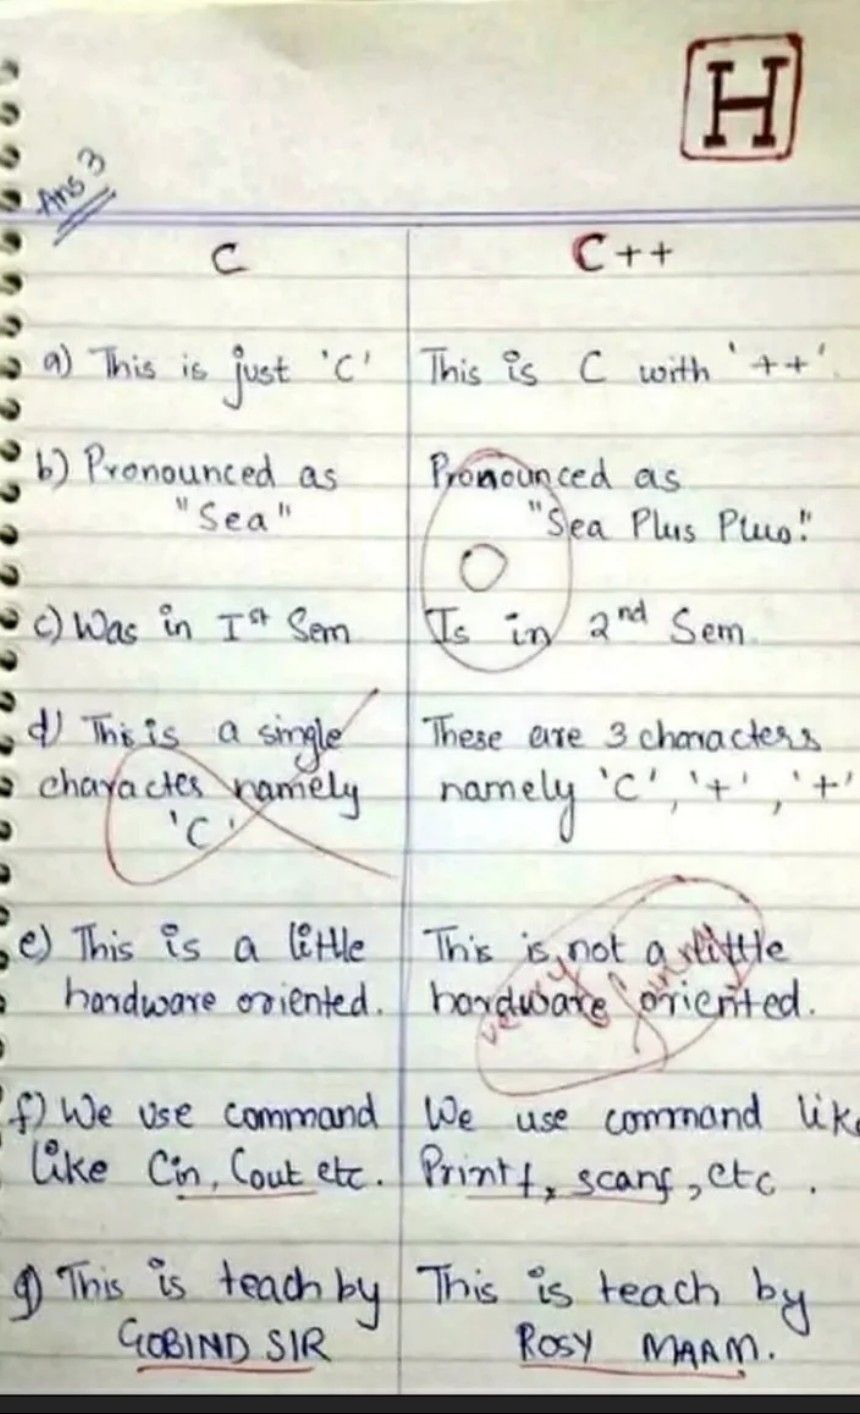 H
Ans 3
C
C++
a) This is just 'C'
This is C with '++'
b) Pronounced as
"Sea"
Pronounced as
"Sea Plus Plus."
0
c) Was in Ist Sem
Is in 2nd Sem
d) This is a single
character namely
'C'
These are 3 characters
namely 'C', '+', '+'
e) This is a little
hardware oriented.
This is not a little
hardware oriented.
very funny
f) We use command
like Cin, Cout etc.
We use command like
Printf, scanf, etc.
g) This is teach by
GOBIND SIR
This is teach by
ROSY MAAM.